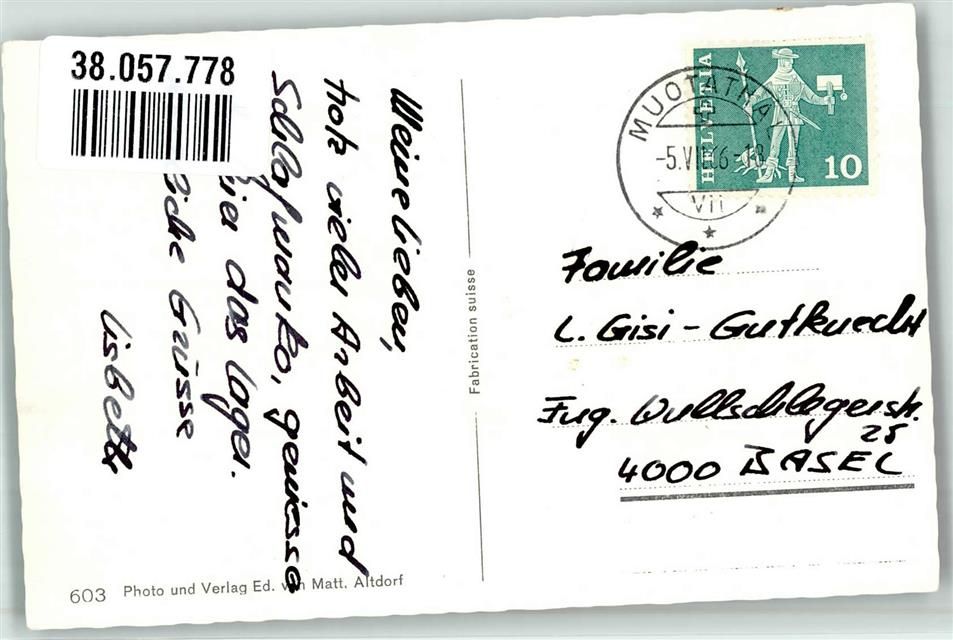 38.057.778
Meine Lieben,
trotz vieler Arbeit und
Schlafmanko, geniesse
hier das Lager.
liche Grüsse
Lisbeth
603 Photo und Verlag Ed. von Matt. Altdorf
Fabrication suisse
HELVETIA
10
MUOTATHAL
-5.VII.66-18
VII
Familie
L. Gisi - Gutknecht
Eug. Wullschlegerstr.
25
4000 BASEL